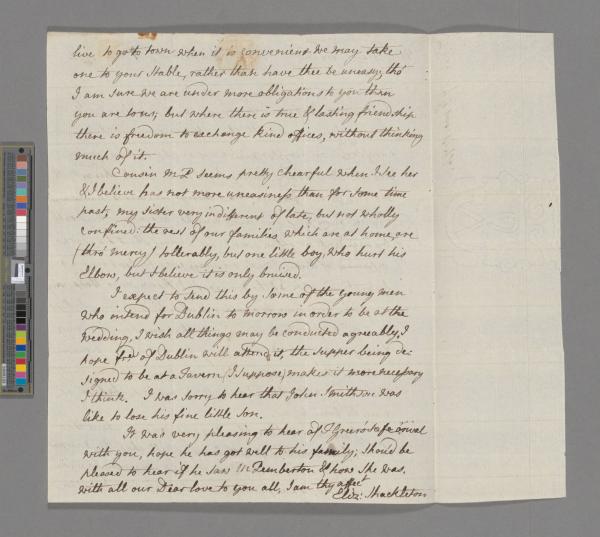 live to go to town when it is convenient we may take
one to your Stable, rather than have thee be uneasy, tho'
I am sure we are under more obligations to you than
you are to us; but where there is true & lasting friendship
there is freedom to exchange kind offices, without thinking
much of it.
Cousin M:P seems pretty chearful when I see her
& I believe has not more uneasiness than for some time
past, my sister very indifferent of late, but not wholly
confined: the rest of our families which are at home, are
(thro' mercy) tollerably, but one little boy, who hurt his
Elbow, but I believe it is only bruised.
I expect to send this by some of the young men
who intend for Dublin to morrow in order to be at the
wedding, I wish all things may be conducted agreably, I
hope frds of Dublin will attend it, the supper being de:
signed to be at a Tavern (I suppose) makes it more necessary
I think. I was sorry to hear that John Smithson was
like to lose his fine little son.
It was very pleasing to hear of Greer's safe arrival
with you, hope he has got well to his family; should be
pleased to hear if he saw Pemberton & how she was.
with all our Dear love to you all, I am thy affect
Eliz: Shackleton